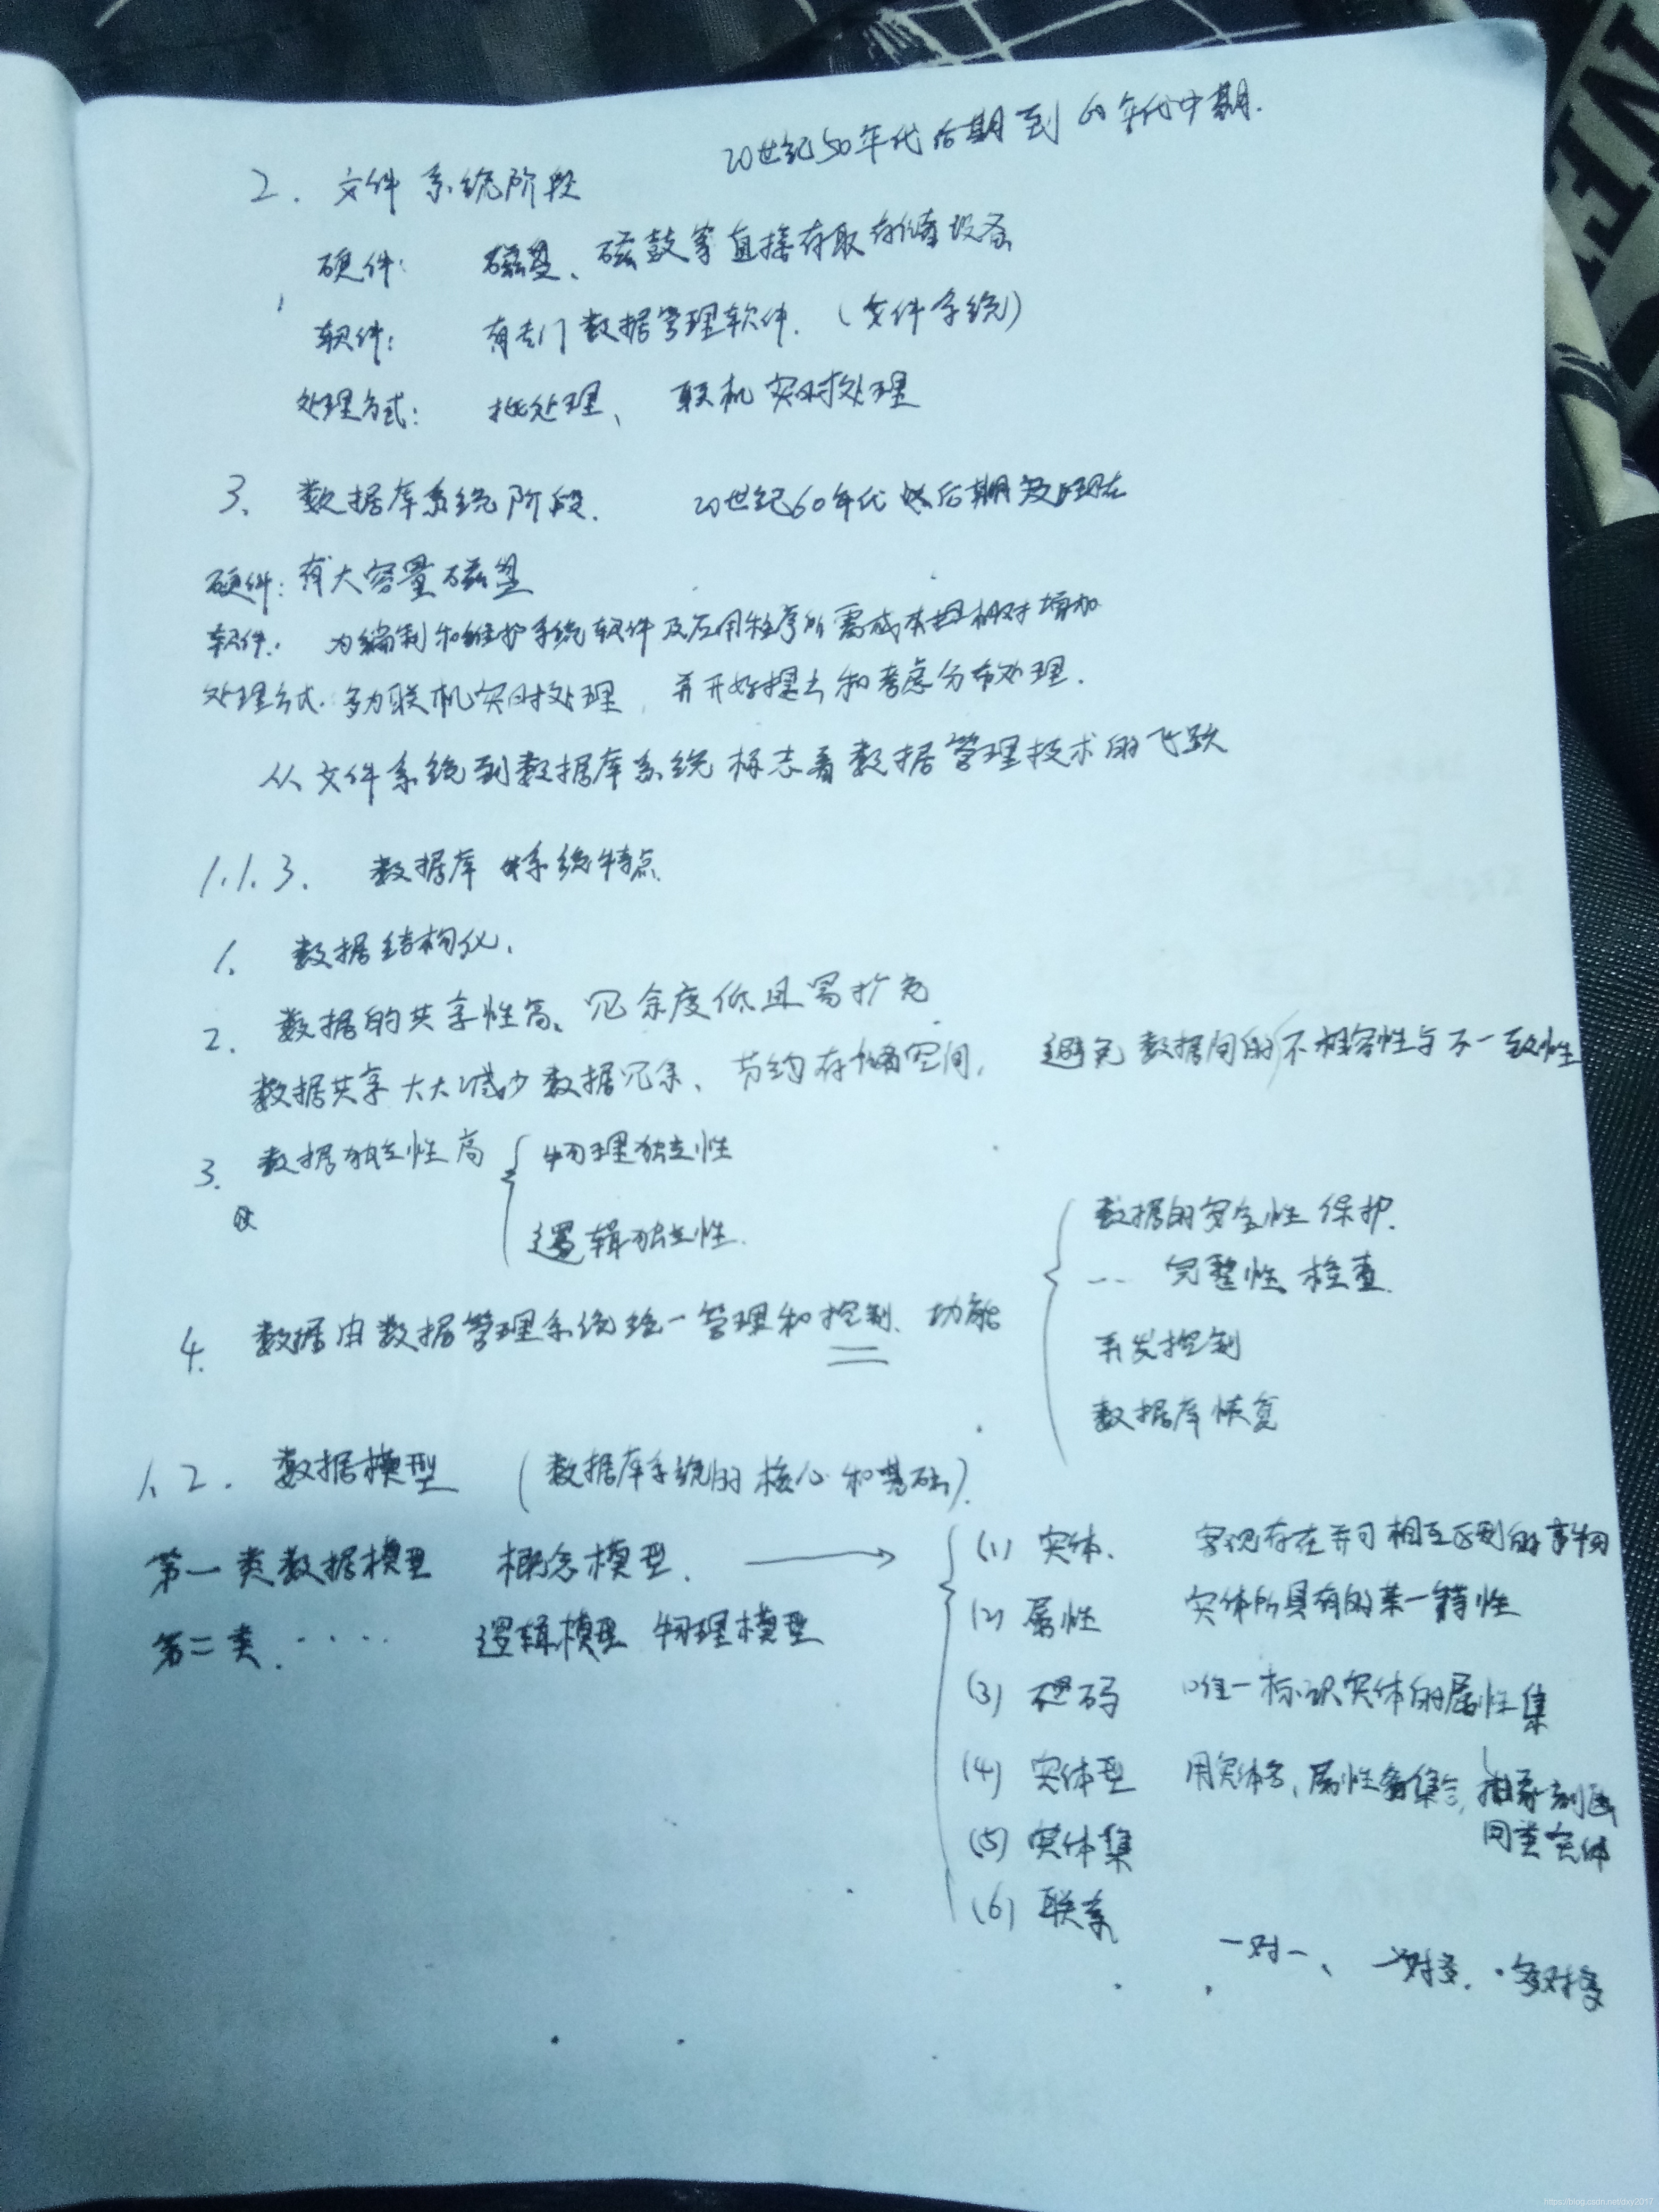 20世纪50年代后期到60年代中期.
2. 文件系统阶段
硬件: 磁盘、磁鼓等直接存取存储设备
软件: 有专门数据管理软件.(文件系统)
处理方式: 批处理、联机实时处理
3、数据库系统阶段. 20世纪60年代后期及现在
硬件:有大容量磁盘
软件: 为编制和维护系统软件及应用程序所需成本相对增加
处理方式.多为联机实时处理,并开始提出和考虑分布处理.
从文件系统到数据库系统标志着数据管理技术的飞跃
1.1.3. 数据库系统特点
1. 数据结构化.
2. 数据的共享性高、冗余度低且易扩充
数据共享大大减少数据冗余、节约存储空间, 避免数据间的不相容性与不一致性
3. 数据独立性高 物理独立性
逻辑独立性.
数据的安全性保护.
... 完整性检查.
4. 数据由数据管理系统统一管理和控制. 功能
并发控制
数据库恢复
1.2. 数据模型 (数据库系统的核心和基础).
第一类数据模型 概念模型. →
(1) 实体. 客观存在并可相互区别的事物
第二类..... 逻辑模型 物理模型
(2) 属性 实体所具有的某一特性
(3) 码 唯一标识实体的属性集
(4) 实体型 用实体名,属性名集合,抽象刻画
同类实体
(5) 实体集
(6) 联系
一对一、一对多.·多对多
https://blog.csdn.net/dxy2017